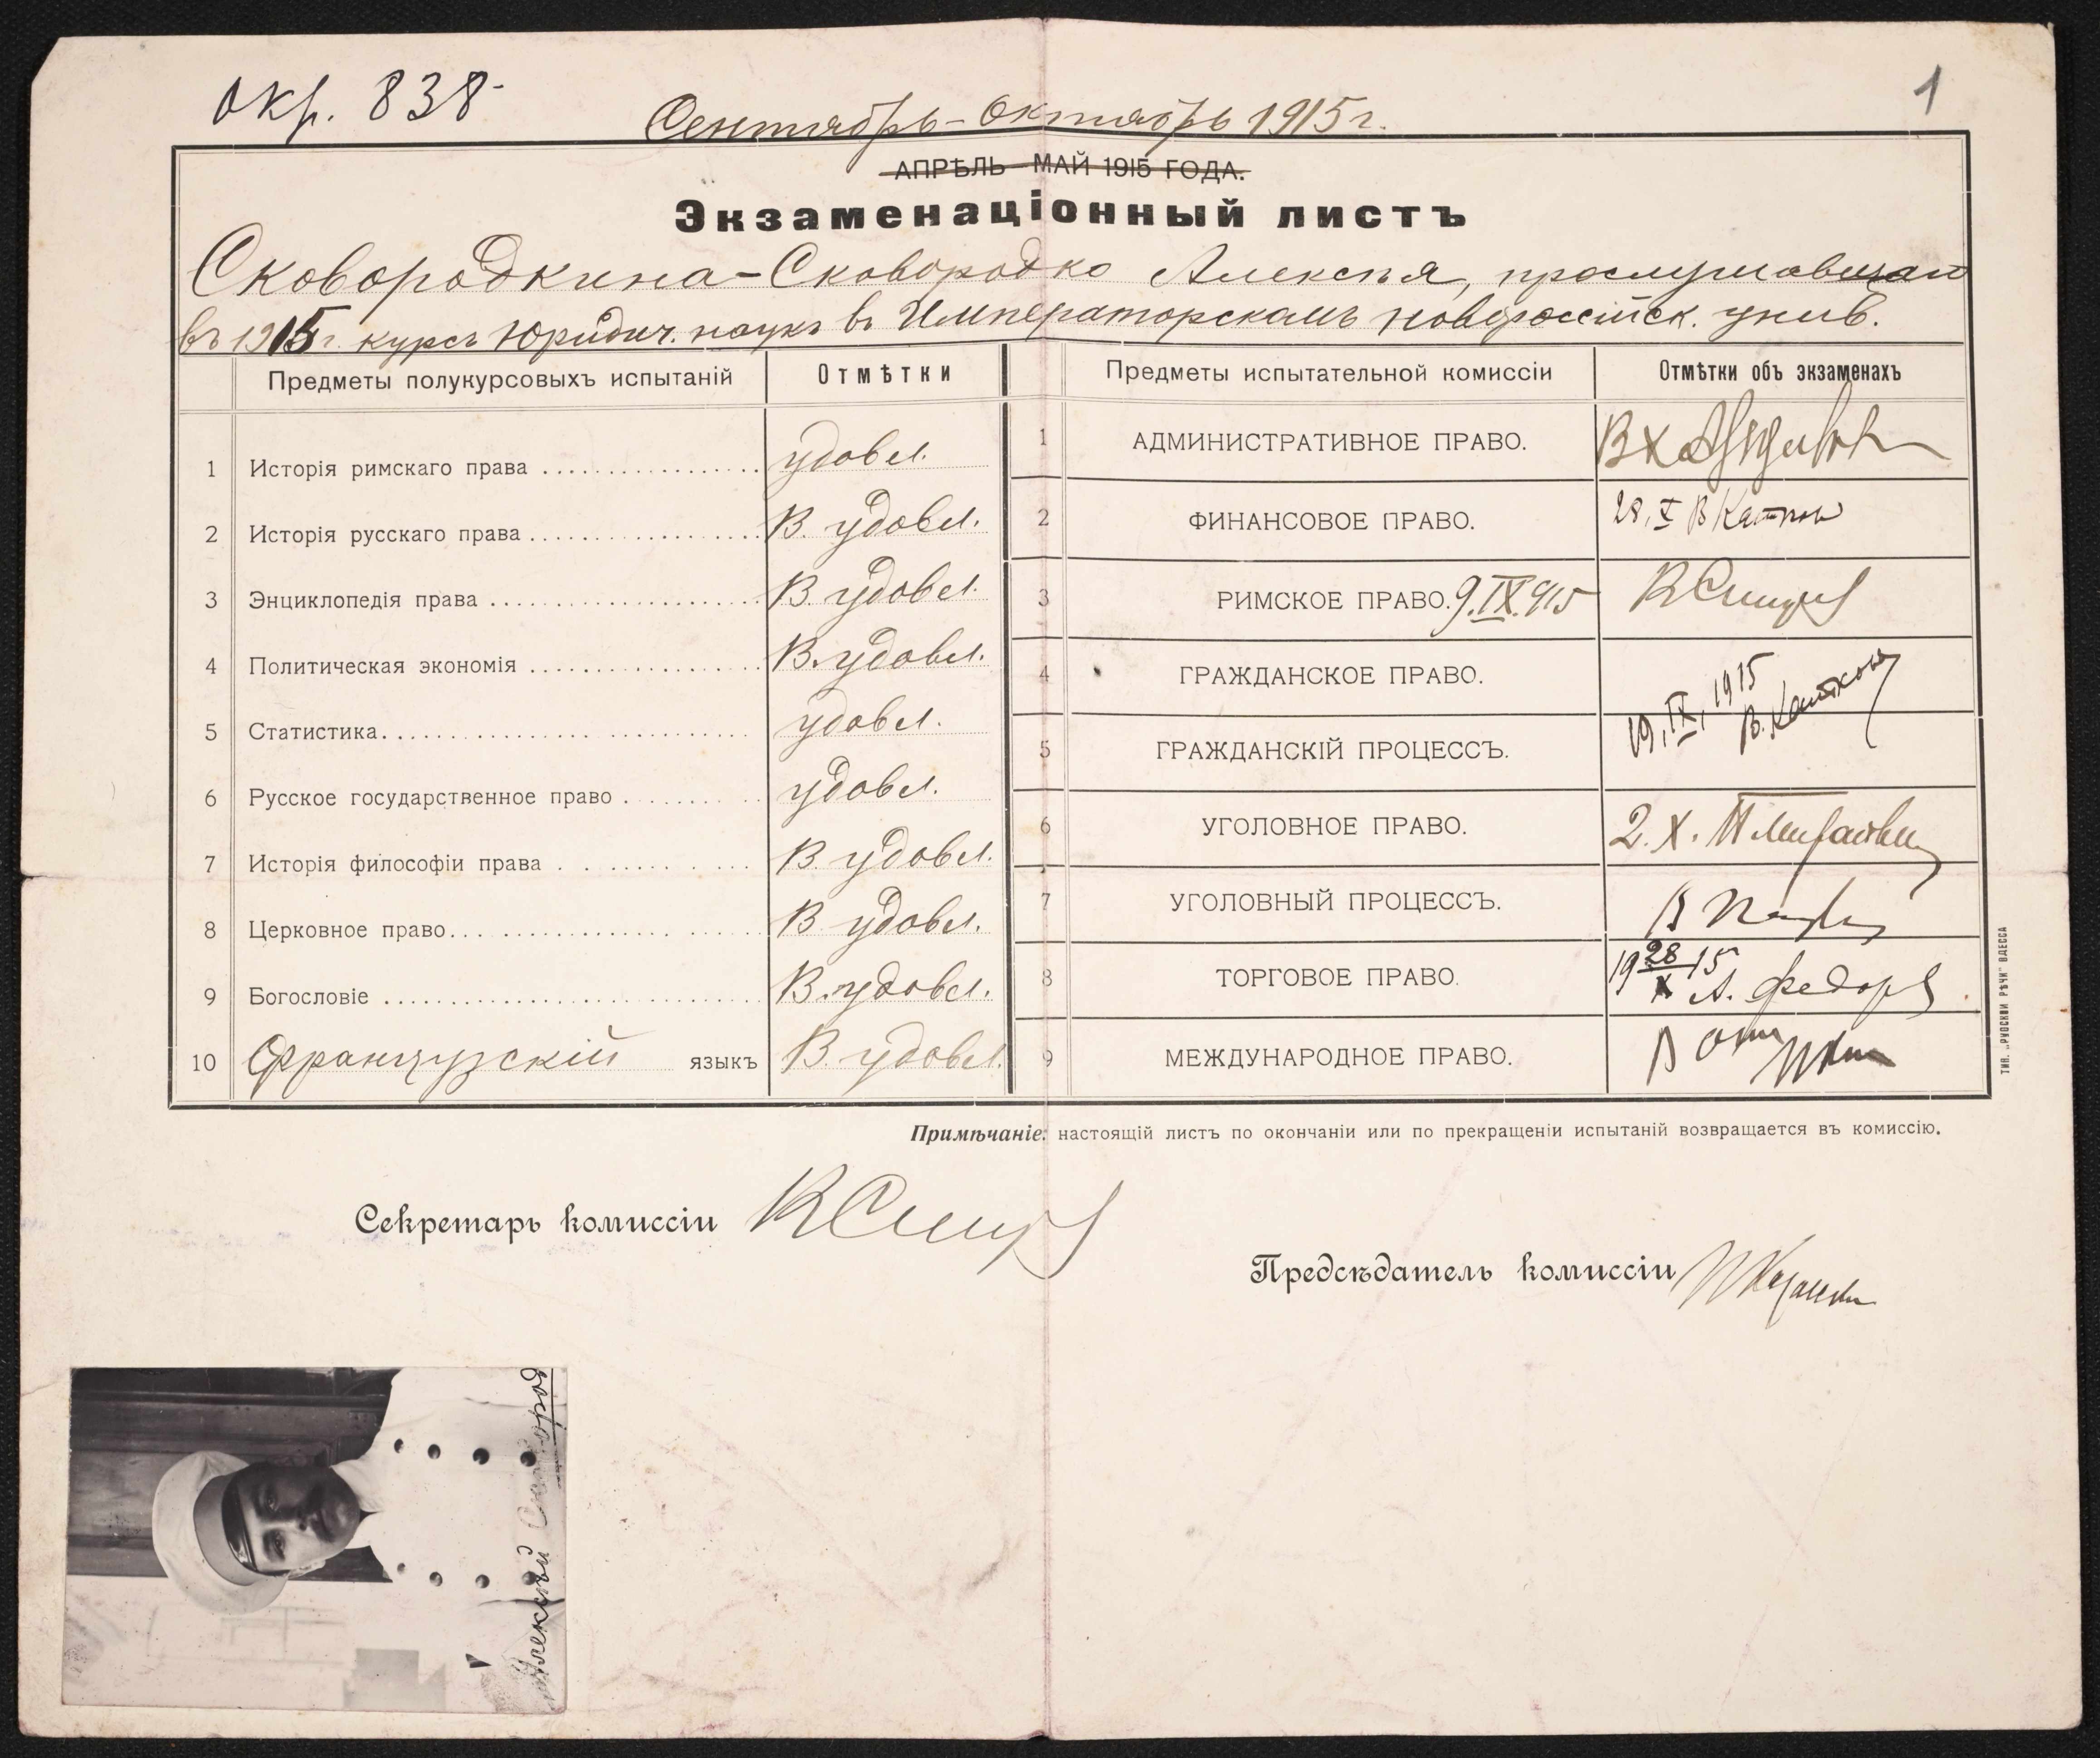 окр. 838
1
Сентябрь - Октябрь 1915 г.
АПРѢЛЬ—МАЙ 1915 ГОДА.
Экзаменаціонный листъ
Сковородкина-Сковородко Алексѣя, прослушавшаго
въ 1915 г. курсъ юридич. наукъ въ Императорскомъ новороссійск. унив.
Предметы полукурсовыхъ испытаній Отмѣтки
1 Исторія римскаго права удовл.
2 Исторія русскаго права В. удовл.
3 Энциклопедія права В. удовл.
4 Политическая экономія В. удовл.
5 Статистика удовл.
6 Русское государственное право удовл.
7 Исторія философіи права В. удовл.
8 Церковное право В. удовл.
9 Богословіе В. удовл.
10 Французскій языкъ В. удовл.
Предметы испытательной комиссіи Отмѣтки объ экзаменахъ
1 АДМИНИСТРАТИВНОЕ ПРАВО. В
2 ФИНАНСОВОЕ ПРАВО. 28. X В
3 РИМСКОЕ ПРАВО. 9.IX.915 В
4 ГРАЖДАНСКОЕ ПРАВО. 19, IX, 1915
5 ГРАЖДАНСКІЙ ПРОЦЕССЪ. В.
6 УГОЛОВНОЕ ПРАВО. 2. X.
7 УГОЛОВНЫЙ ПРОЦЕССЪ. В
8 ТОРГОВОЕ ПРАВО. 19 28/X 15 А. Федоров
9 МЕЖДУНАРОДНОЕ ПРАВО. В
Примѣчаніе: настоящій листъ по окончаніи или по прекращеніи испытаній возвращается въ комиссію.
ТИП. „РУССКОЙ РѢЧИ" ОДЕССА
Секретарь комиссіи
Предсѣдатель комиссіи
Алексѣй